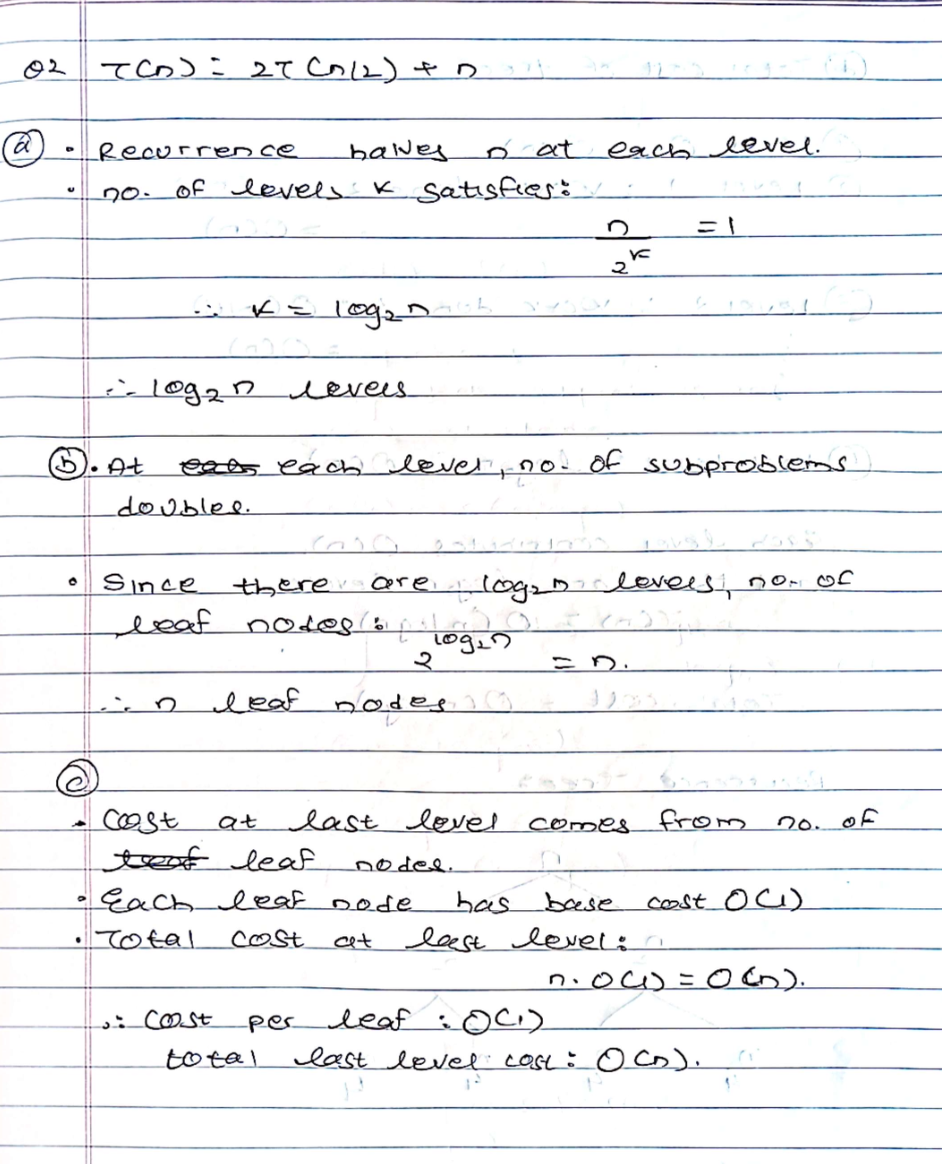 Q2 T(n) = 2T(n/2) + n
(a) • Recurrence halves n at each level.
• no. of levels k satisfies:
n/2^k = 1
∴ k = log₂n
∴ log₂n levels
(b) • At each level, no. of subproblems
doubles.
• Since there are log₂n levels, no. of
leaf nodes:
2^log₂n = n.
∴ n leaf nodes
(c)
• Cost at last level comes from no. of
leaf nodes.
• Each leaf node has base cost O(1)
• Total cost at last level:
n. O(1) = O(n).
∴ Cost per leaf : O(1)
total last level cost : O(n).